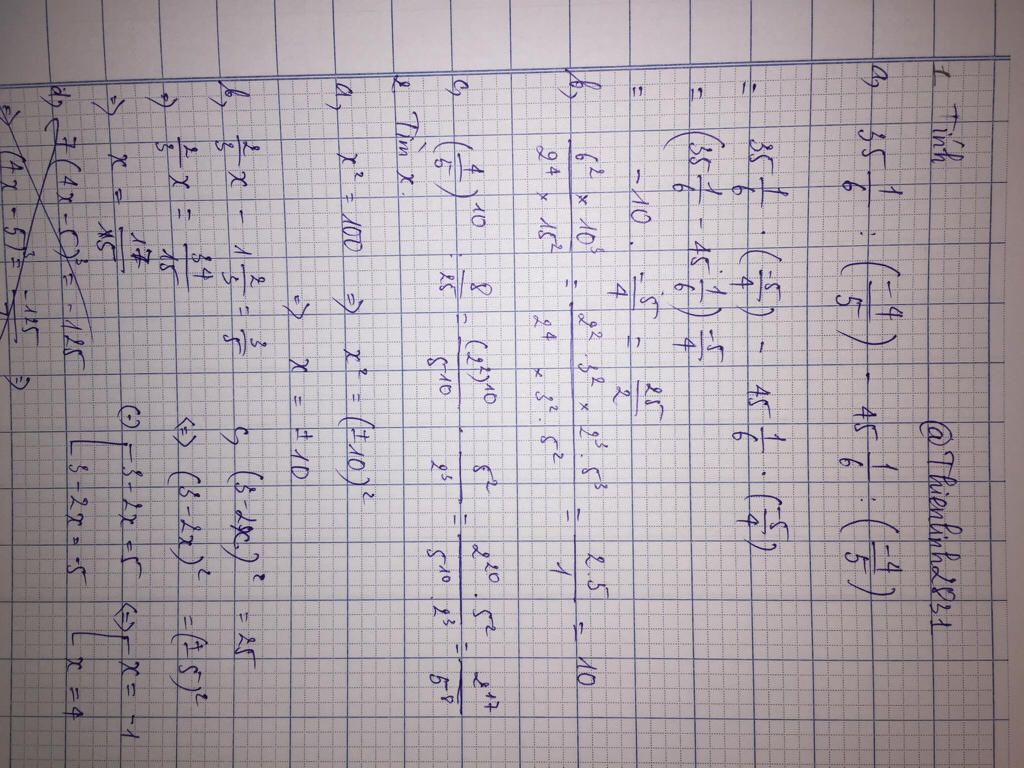 1 Tính @Thienlinh2831
a, 35 1/6 : (-4/5) - 45 1/6 : (-4/5)
= 35 1/6 . (-5/4) - 45 1/6 . (-5/4)
= (35 1/6 - 45 1/6) -5/4
= -10 . -5/4 = 25/2
b, 6² × 10³ / 2⁴ × 15² = 2² . 3² × 2³ . 5³ / 2⁴ × 3² . 5² = 2.5/1 = 10
c, (4/5)¹⁰ : 8/25 = (2²)¹⁰/5¹⁰ . 5²/2³ = 2²⁰ . 5² / 5¹⁰ . 2³ = 2¹⁷/5⁸
2 Tìm x
a, x² = 100 => x² = (±10)²
=> x = ±10
b, 2/3 x - 1 2/3 = 3/5
=> 2/3 x = 34/15
=> x = 17/15
c, (3 - 2x)² = 25
(=) (3 - 2x)² = (±5)²
(=) [ 3 - 2x = 5 (=) [ x = -1
3 - 2x = -5 x = 4
d, 7 (4x - 5)³ = -125
=> (4x - 5)³ = -125 =>